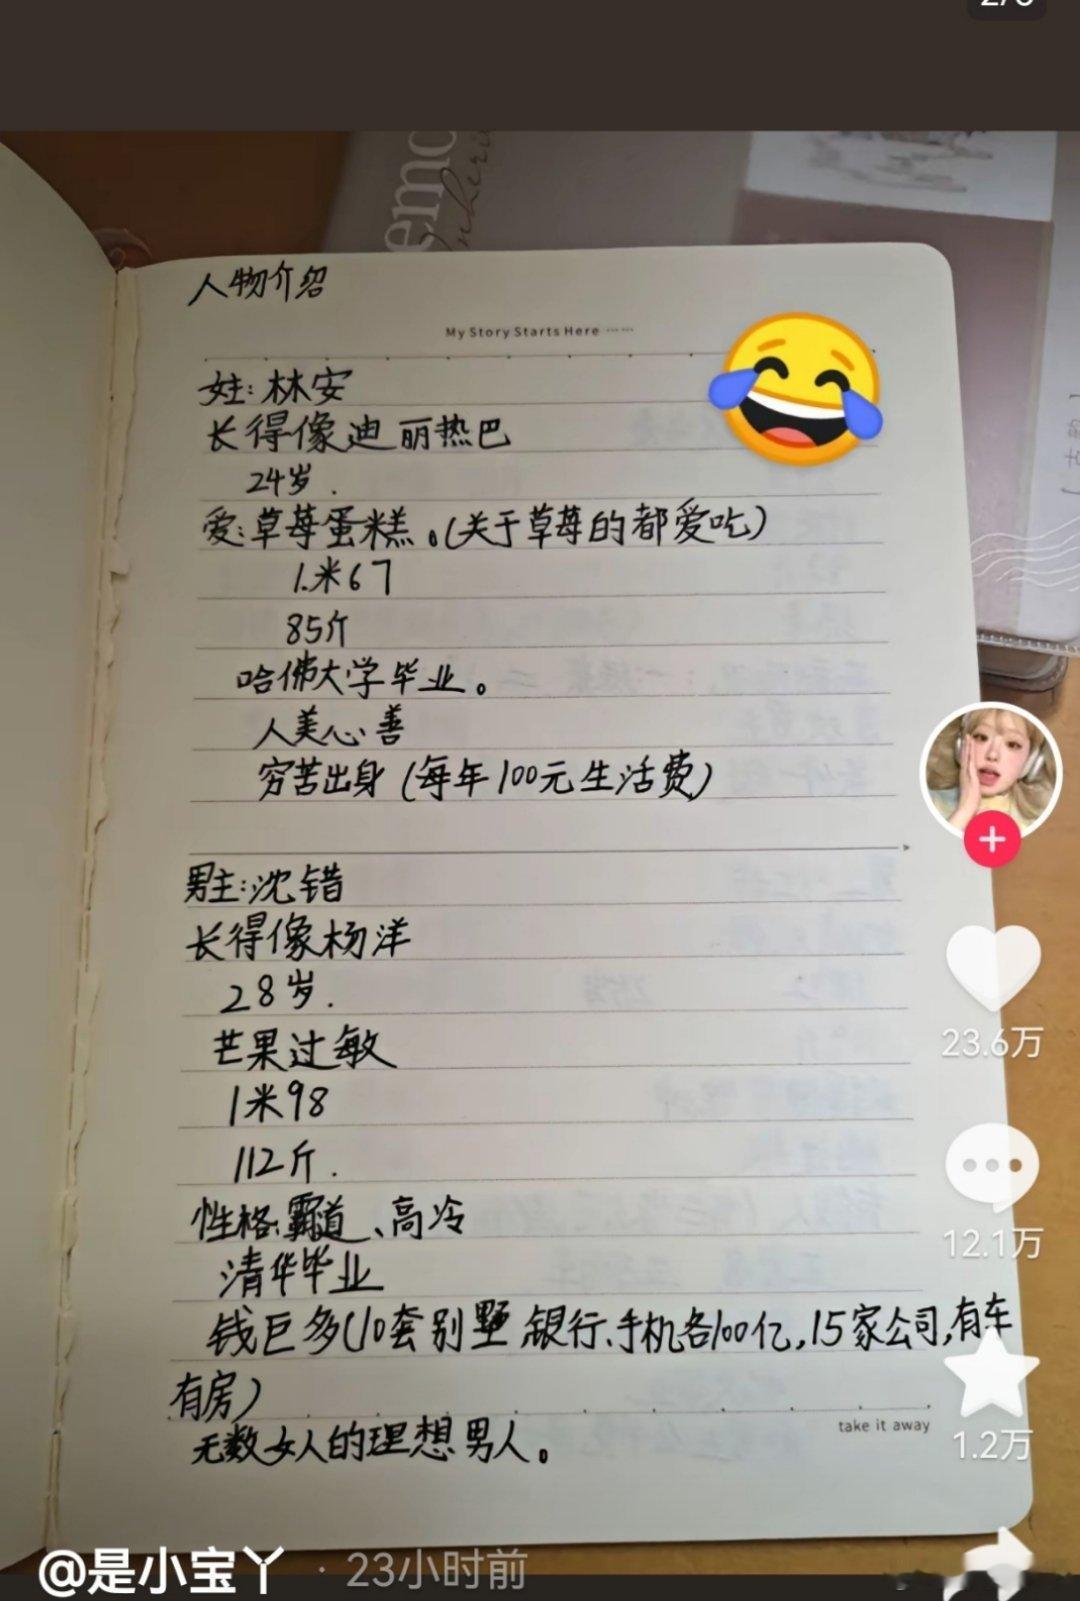 人物介绍
My Story Starts Here ······
女主: 林安
长得像迪丽热巴
24岁.
爱:草莓蛋糕。(关于草莓的都爱吃)
1.米67
85斤
哈佛大学毕业。
人美心善
穷苦出身 (每年100元生活费)
男主:沈错
长得像杨洋
28岁.
芒果过敏
1米98
112斤.
性格:霸道、高冷
清华毕业
钱巨多(10套别墅,银行、手机各100亿,15家公司,有车
有房)
take it away
无数女人的理想男人。
23.6万
12.1万
1.2万
@是小宝丫 · 23小时前